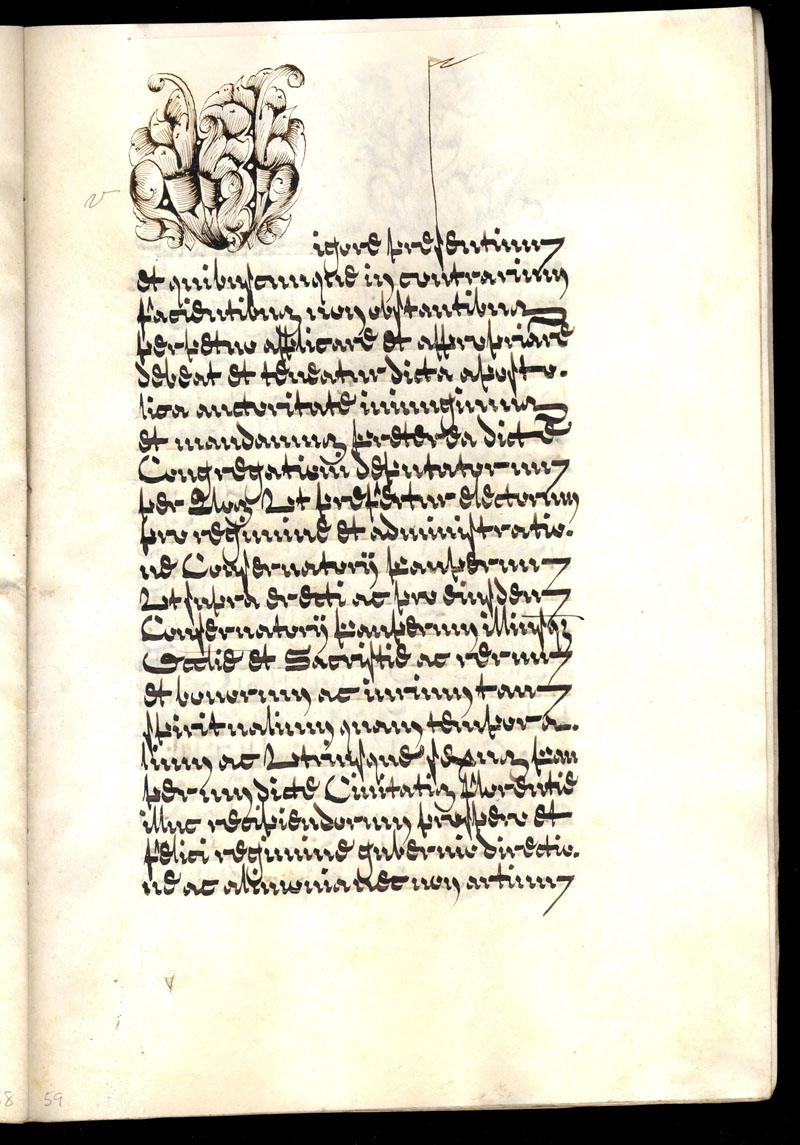 v
Vigore presentium
et quibuscunque in contrarium
facientibus non obstantibus
perpetuo applicare et appropriare
debeat et teneatur dicta aposto-
lica auctoritate iniungimus
et mandamus preterea dicte
Congregationi deputatorum
per Ut prefertur electorum
pro regimine et administratio-
ne Conservatorij pauperum
Ut supra erecti ac pro eiusdem
Conservatorij pauperum illiusq;
Ecclie et Sacristie ac rerum
et bonorum ac iurium tam
spiritualium quam tempora-
lium ac Utriusque sexus pau
perum dicte Civitatis florentie
illuc recipiendorum prospero et
felici regimine gubernio directio-
ne ac alimonia nec non artium
58 59